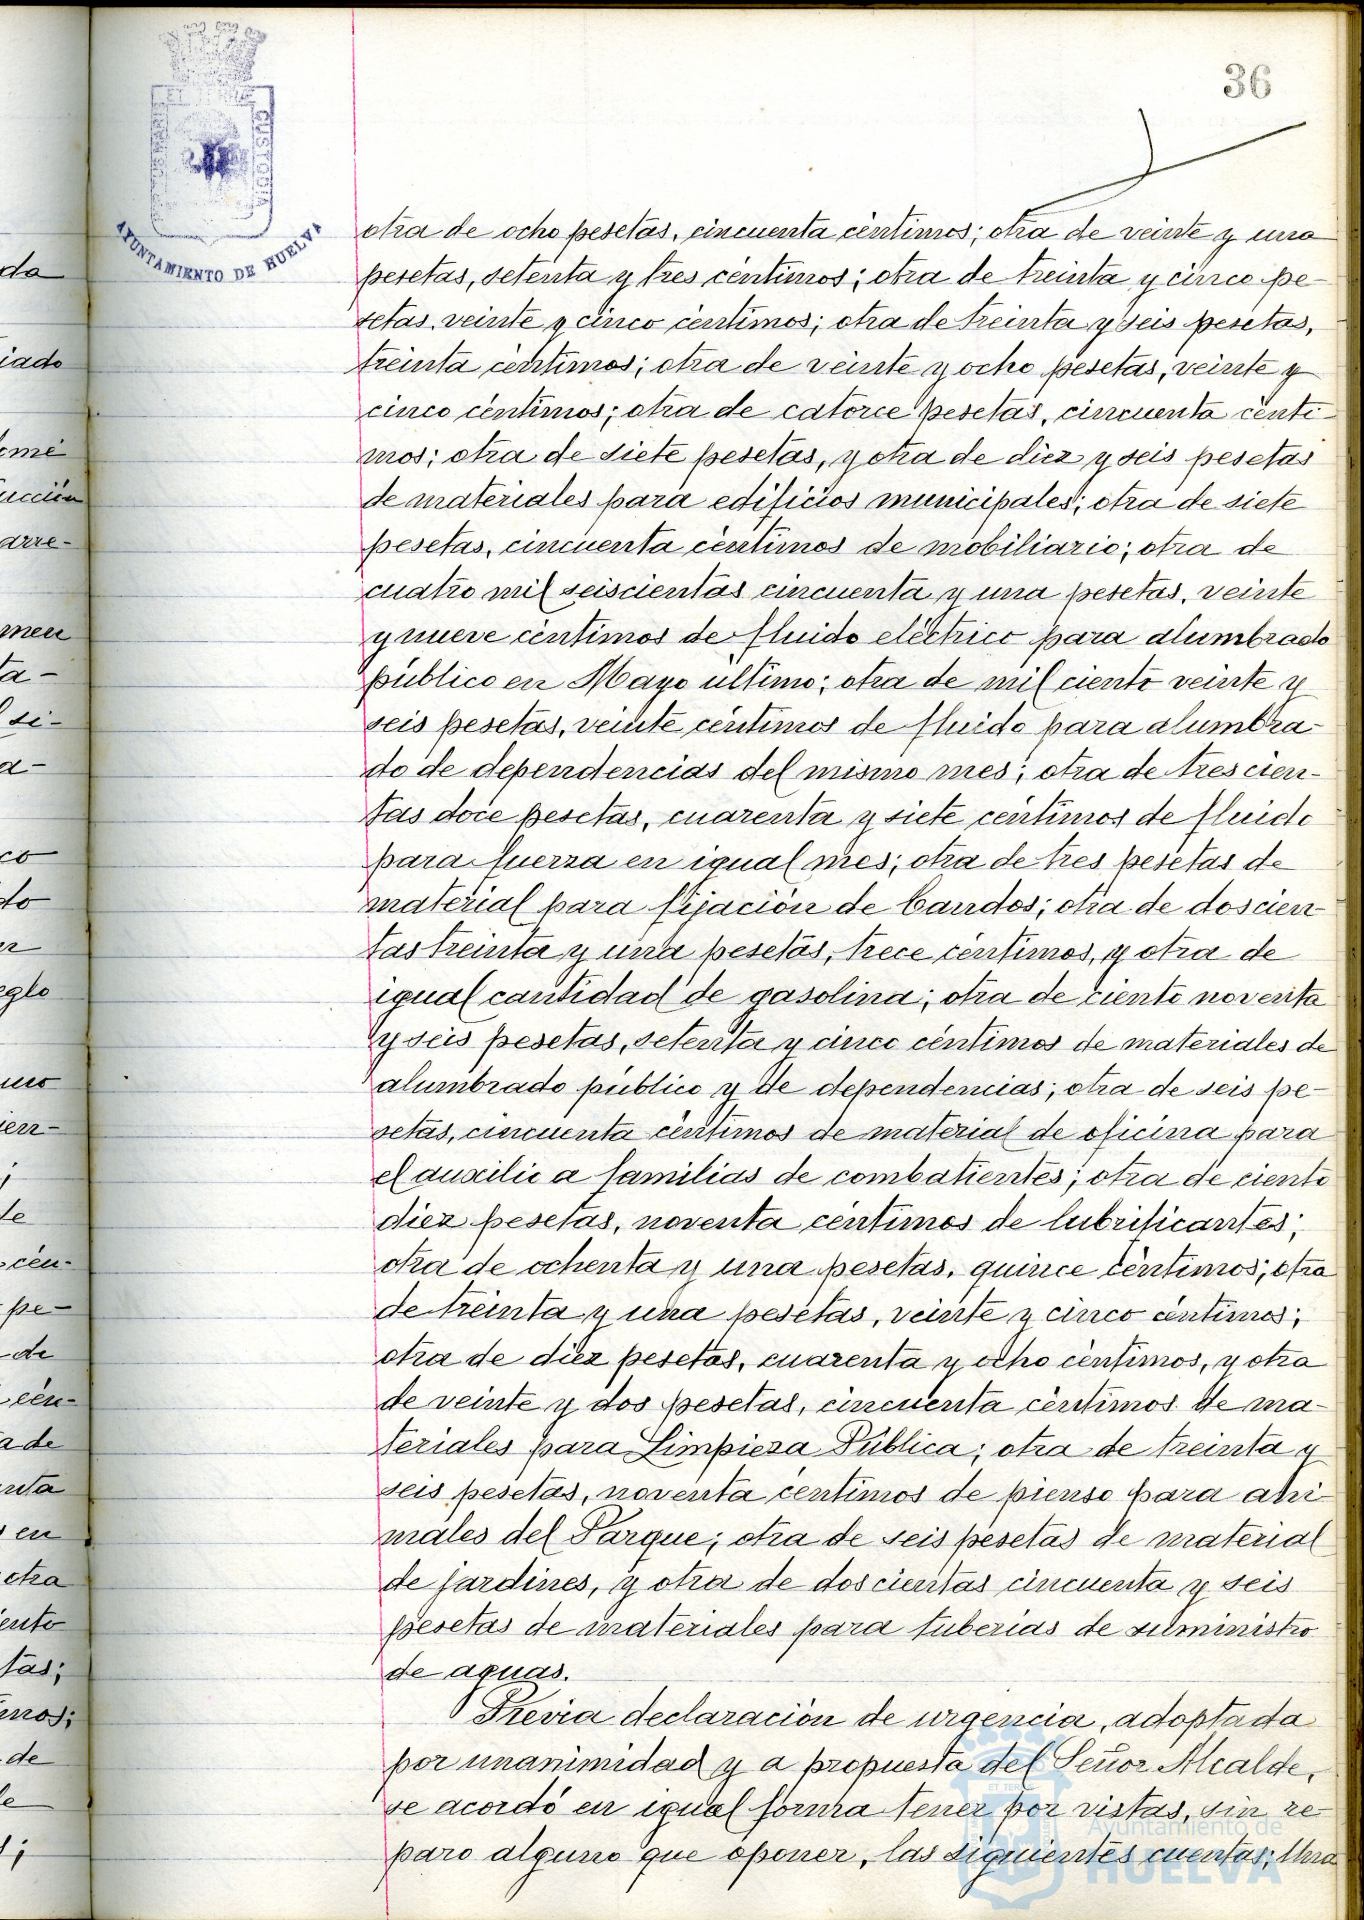 36
ET TERRAE
CUSTODIA
AYUNTAMIENTO DE HUELVA
otra de ocho pesetas, cincuenta céntimos; otra de veinte y una
pesetas, setenta y tres céntimos; otra de treinta y cinco pe-
setas, veinte y cinco céntimos; otra de treinta y seis pesetas,
treinta céntimos; otra de veinte y ocho pesetas, veinte y
cinco céntimos; otra de catorce pesetas, cincuenta cénti-
mos; otra de siete pesetas, y otra de diez y seis pesetas
de materiales para edificios municipales; otra de siete
pesetas, cincuenta céntimos de mobiliario; otra de
cuatro mil seiscientas cincuenta y una pesetas, veinte
y nueve céntimos de fluido eléctrico para alumbrado
público en Mayo último; otra de mil ciento veinte y
seis pesetas, veinte céntimos de fluido para alumbra-
do de dependencias del mismo mes; otra de trescien-
tas doce pesetas, cuarenta y siete céntimos de fluido
para fuerza en igual mes; otra de tres pesetas de
material para fijación de bandos; otra de doscien-
tas treinta y una pesetas, trece céntimos, y otra de
igual cantidad de gasolina; otra de ciento noventa
y seis pesetas, setenta y cinco céntimos de materiales de
alumbrado público y de dependencias; otra de seis pe-
setas, cincuenta céntimos de material de oficina para
el auxilio a familias de combatientes; otra de ciento
diez pesetas, noventa céntimos de lubrificantes;
otra de ochenta y una pesetas, quince céntimos; otra
de treinta y una pesetas, veinte y cinco céntimos;
otra de diez pesetas, cuarenta y ocho céntimos, y otra
de veinte y dos pesetas, cincuenta céntimos de ma-
teriales para Limpieza Pública; otra de treinta y
seis pesetas, noventa céntimos de pienso para ani-
males del Parque; otra de seis pesetas de material
de jardines, y otra de doscientas cincuenta y seis
pesetas de materiales para tuberias de suministro
de aguas.
Previa declaración de urgencia, adoptada
por unanimidad y a propuesta del Señor Alcalde,
se acordó en igual forma tener por vistas, sin re-
paro alguno que oponer, las siguientes cuentas; Una
Ayuntamiento de
HUELVA